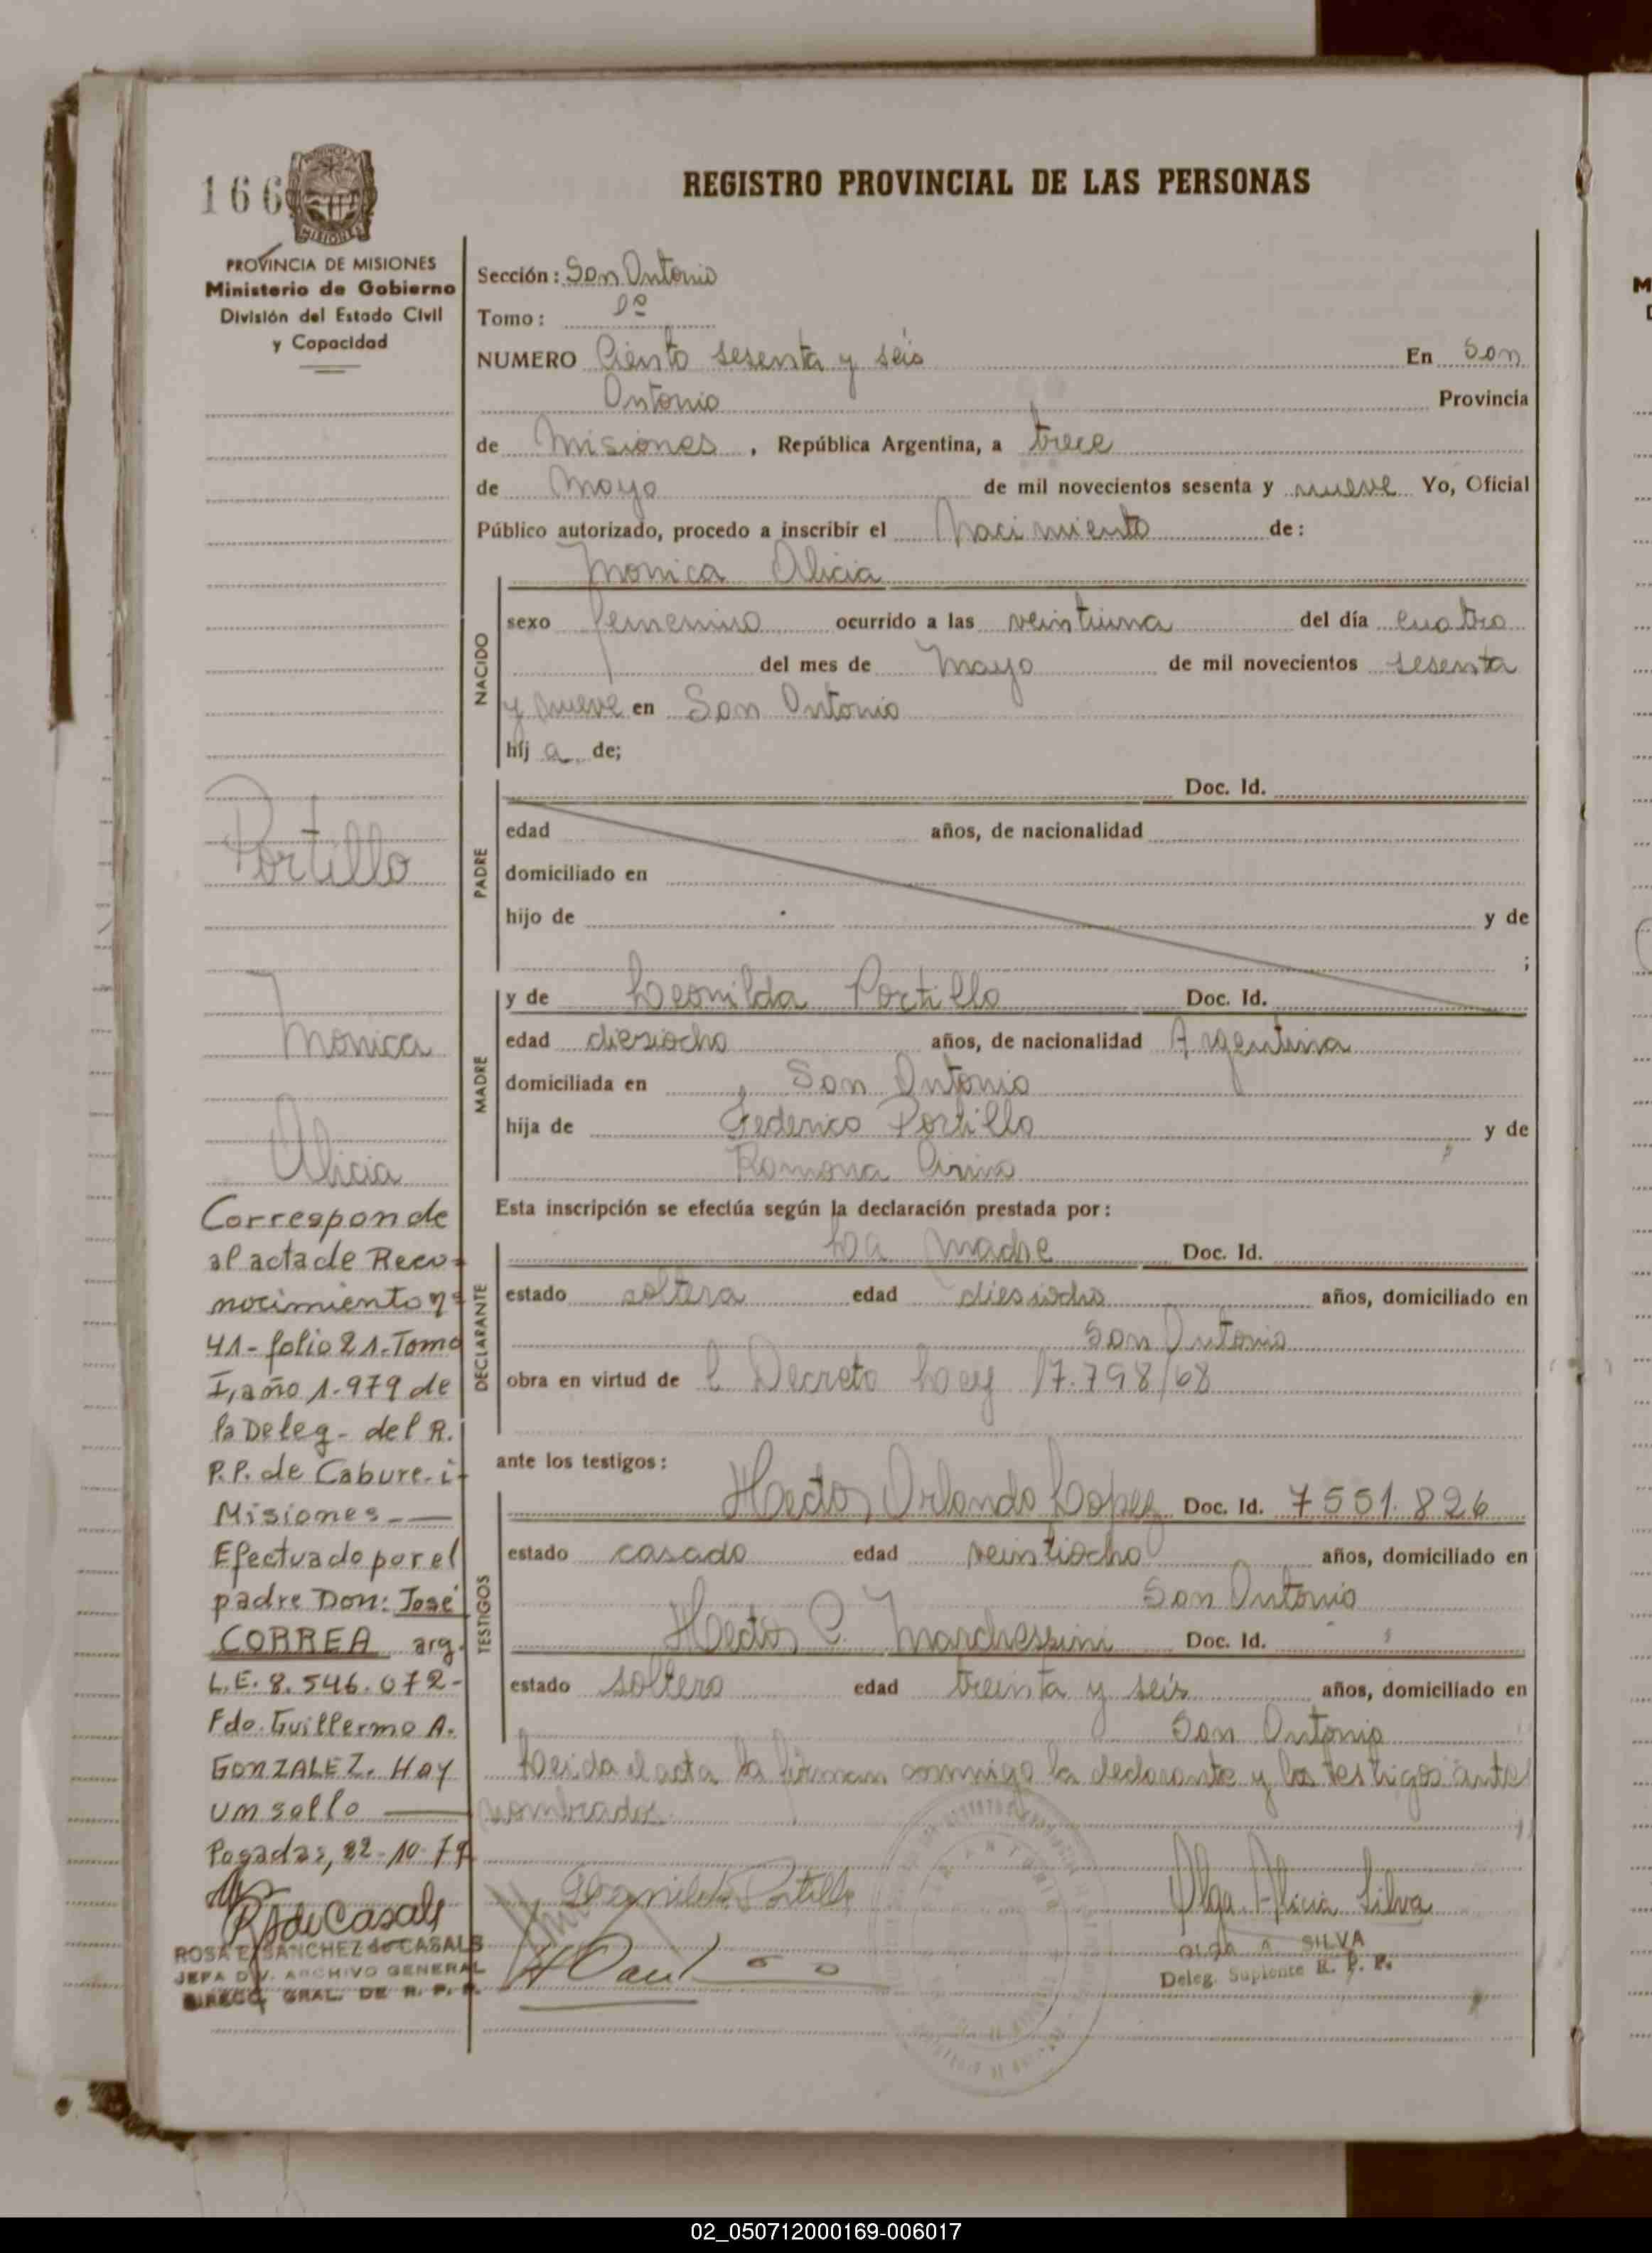 166
PROVINCIA DE MISIONES
Ministerio de Gobierno
División del Estado Civil
y Capacidad
REGISTRO PROVINCIAL DE LAS PERSONAS
Sección: San Antonio
Tomo: 1º
NUMERO Ciento sesenta y seis En San
Antonio Provincia
de Misiones, República Argentina, a trece
de Mayo de mil novecientos sesenta y nueve Yo, Oficial
Público autorizado, procedo a inscribir el Nacimiento de:
Monica Alicia
NACIDO
sexo femenino ocurrido a las veintiuna del día cuatro
del mes de Mayo de mil novecientos sesenta
y nueve en San Antonio
hij a de;
PADRE
Doc. Id.
edad años, de nacionalidad
domiciliado en
hijo de y de
;
MADRE
y de Leonilda Portillo Doc. Id.
edad diesiocho años, de nacionalidad Argentina
domiciliada en San Antonio
hija de Federico Portillo y de
Ramona
Esta inscripción se efectúa según la declaración prestada por:
DECLARANTE
La Madre Doc. Id.
estado soltera edad diesiocho años, domiciliado en
San Antonio
obra en virtud de l Decreto Ley 17.798/68
ante los testigos:
TESTIGOS
Hector Orlando Lopez Doc. Id. 7551.826
estado casado edad veintiocho años, domiciliado en
San Antonio
Hector C. Marchessini Doc. Id.
estado soltero edad treinta y seis años, domiciliado en
San Antonio
Leida el acta la firman conmigo la declarante y los testigos antes
nombrados.
Leonilda Portillo
Olga Alicia Silva
OLGA A. SILVA
Deleg. Suplente R. P. P.
Portillo
Monica
Alicia
Corresponde
al acta de Reco-
nocimiento nº
41-folio 21-Tomo
I, año 1.979 de
la Deleg- del R.
P.P. de Cabure-i-
Misiones.-—
Efectuado por el
padre Don: José
CORREA arg.
L.E. 8.546.072-
Fdo. Guillermo A.
GONZALEZ. Hay
un sello —
Posadas, 22-10-79
R S de Casals
ROSA E. SANCHEZ de CASALS
JEFA DIV. ARCHIVO GENERAL
DIRECC. GRAL. DE R. P. P.
02_050712000169-006017